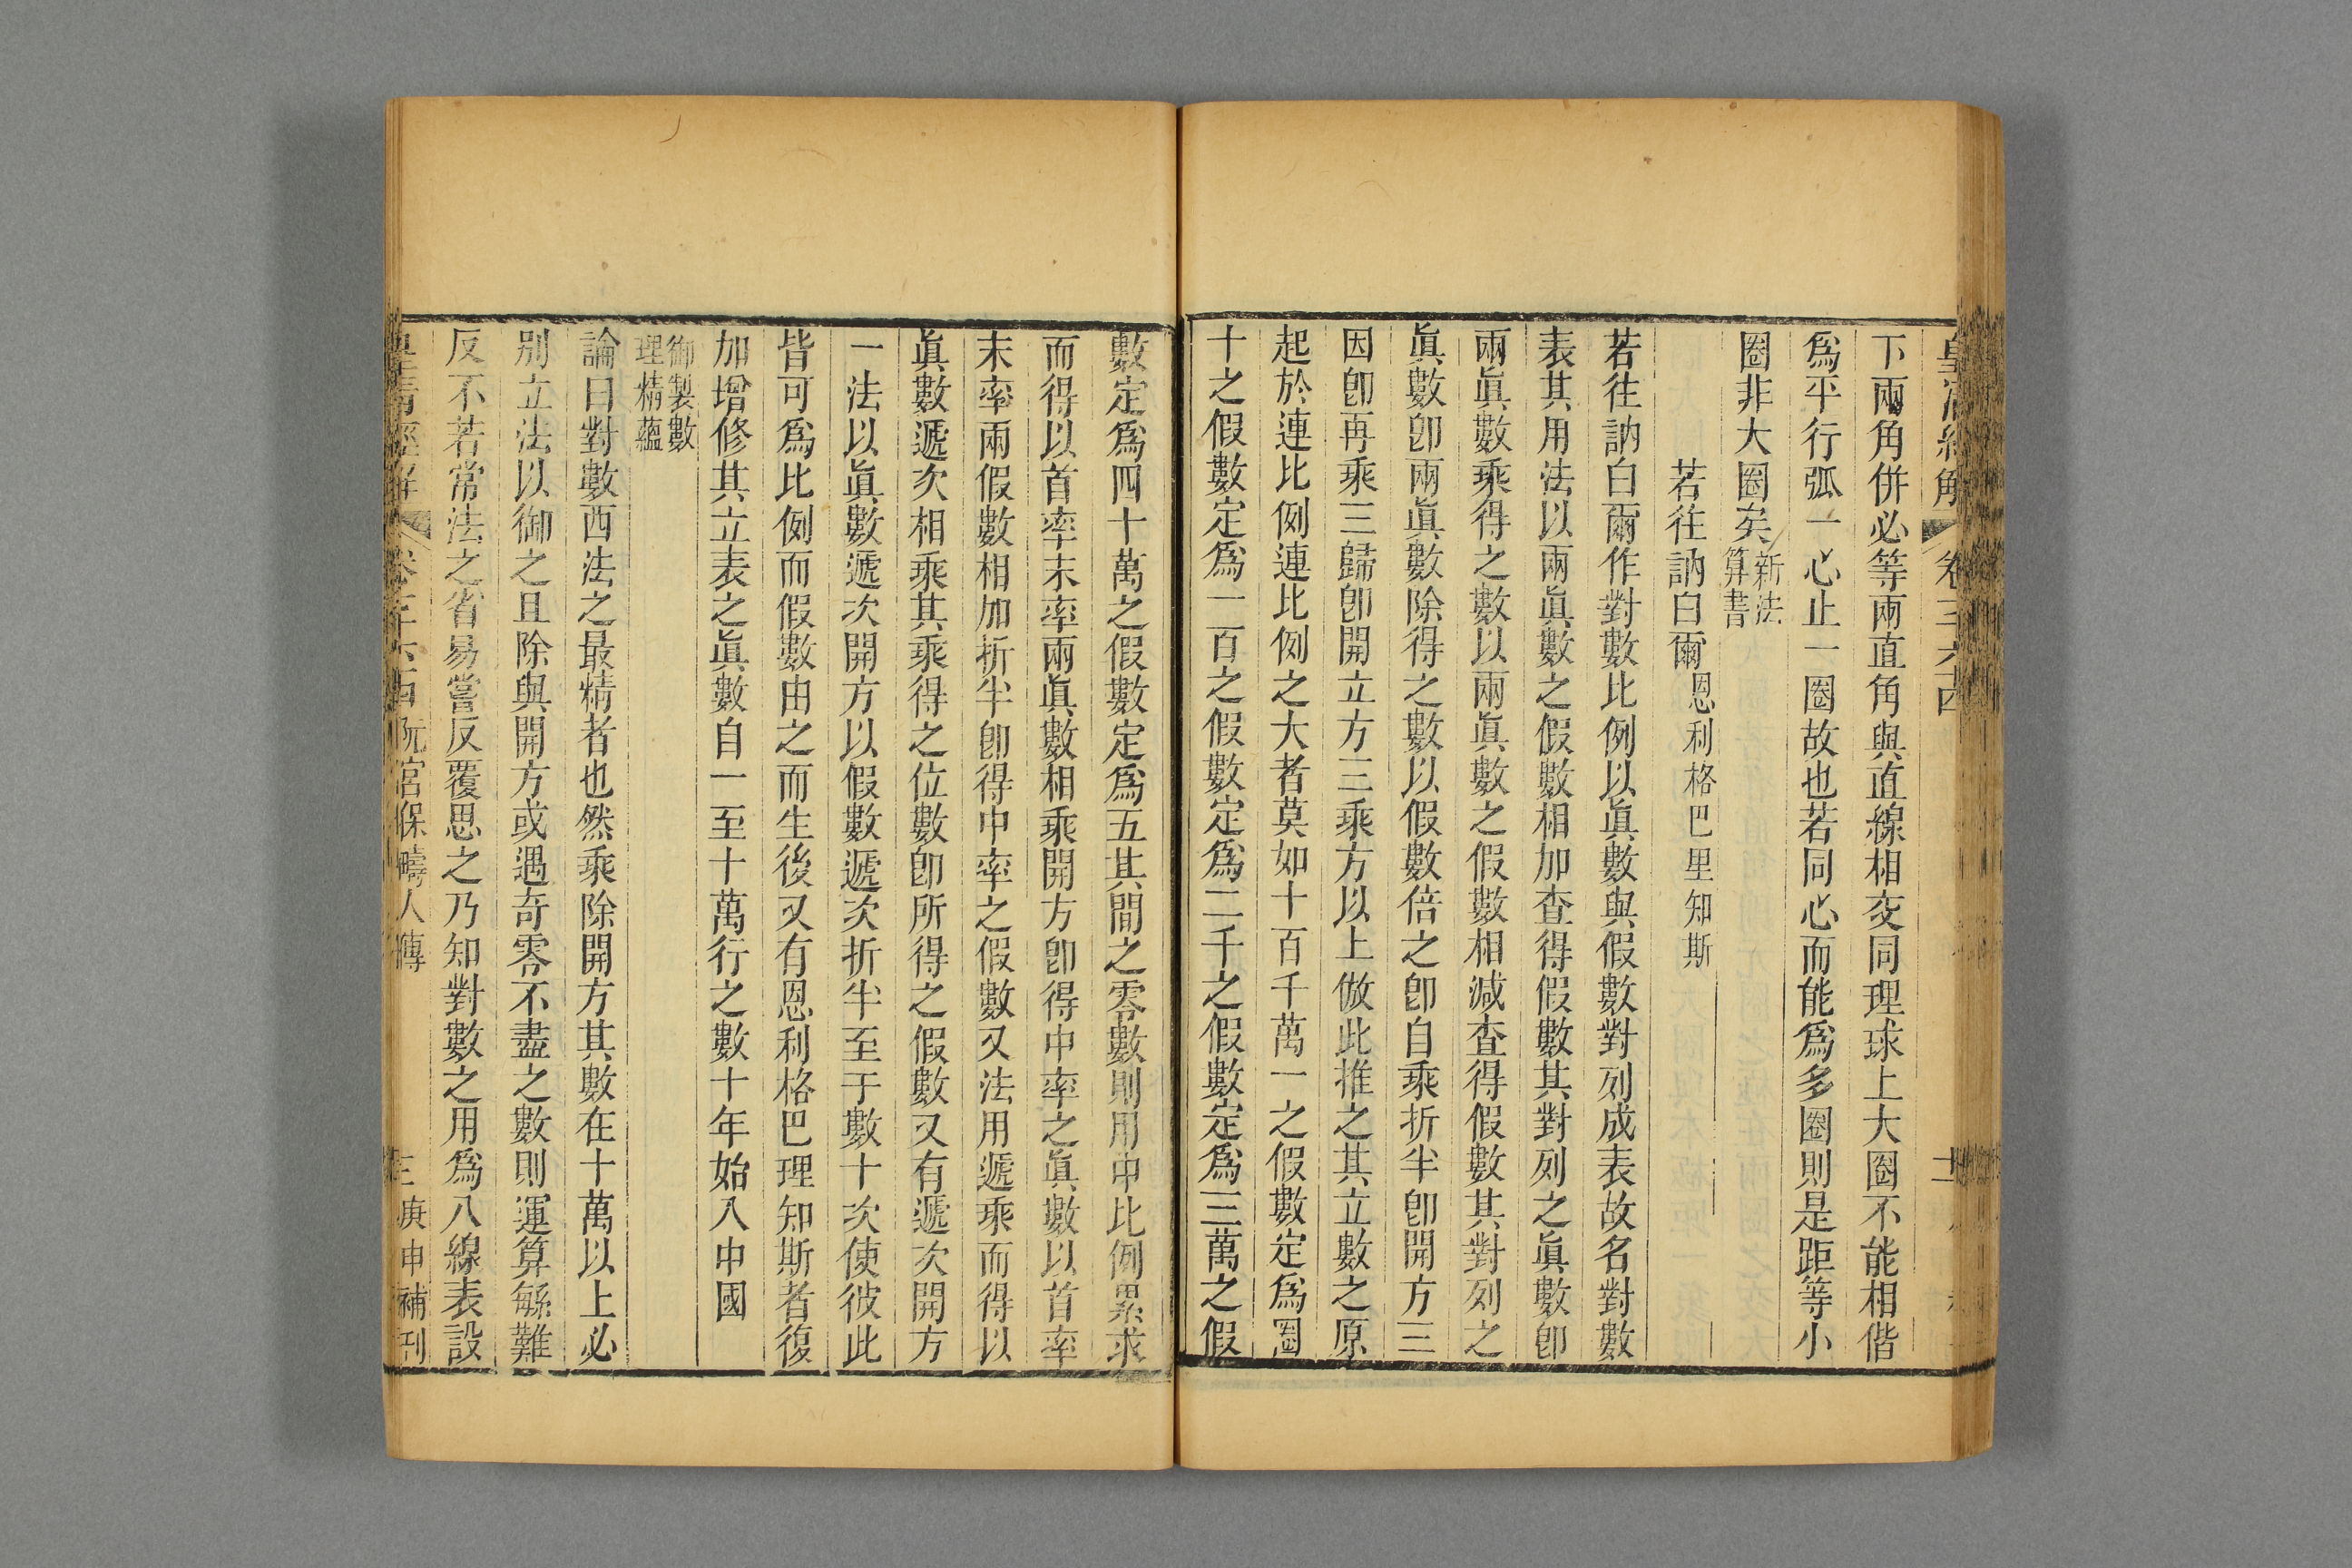 皇清經解 卷三
下兩角併必等兩直角與直線相交同理球上大圈不能相偕
爲平行弧一心止一圈故也若同心而能爲多圈則是距等小
圈非大圈矣新法算書
若往訥白爾 恩利格巴里知斯
若往訥白爾作對數比例以眞數與假數對列成表故名對數
表其用法以兩眞數之假數相加查得假數其對列之眞數卽
兩眞數乘得之數以兩眞數之假數相減查得假數其對列之
眞數卽兩眞數除得之數以假數倍之卽自乘折半卽開方三
因卽再乘三歸卽開立方三乘方以上倣此推之其立數之原
起於連比例連比例之大者莫如十百千萬一之假數定爲
十之假數定爲一百之假數定爲二千之假數定爲三萬之假
數定爲四十萬之假數定爲五其間之零數則用中比例累求
而得以首率末率兩眞數相乘開方卽得中率之眞數以首率
末率兩假數相加折半卽得中率之假數又法用遞乘而得以
眞數遞次相乘其乘得之位數卽所得之假數又有遞次開方
一法以眞數遞次開方以假數遞次折半至于數十次使彼此
皆可爲比例而假數由之而生後又有恩利格巴理知斯者復
加增修其立表之眞數自一至十萬行之數十年始入中國
御製數理精蘊
論曰對數西法之最精者也然乘除開方其數在十萬以上必
別立法以御之且除與開方或遇奇零不盡之數則運算繇難
反不若常法之省易嘗反覆思之乃知對數之用爲八線表設
皇清經解 卷 阮宮保疇人傳 三 庚申補刊